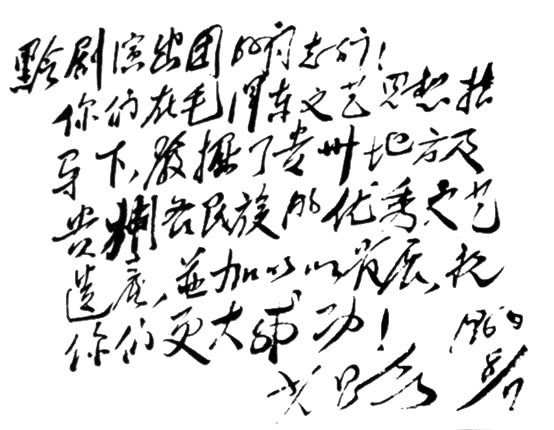 黔剧演出团的同志们！
你们在毛泽东文艺思想指
导下，发掘了贵州地方及
贵州各民族的优秀文艺
遗产，并加以发展，祝
你们更大成功！
1960
8/7